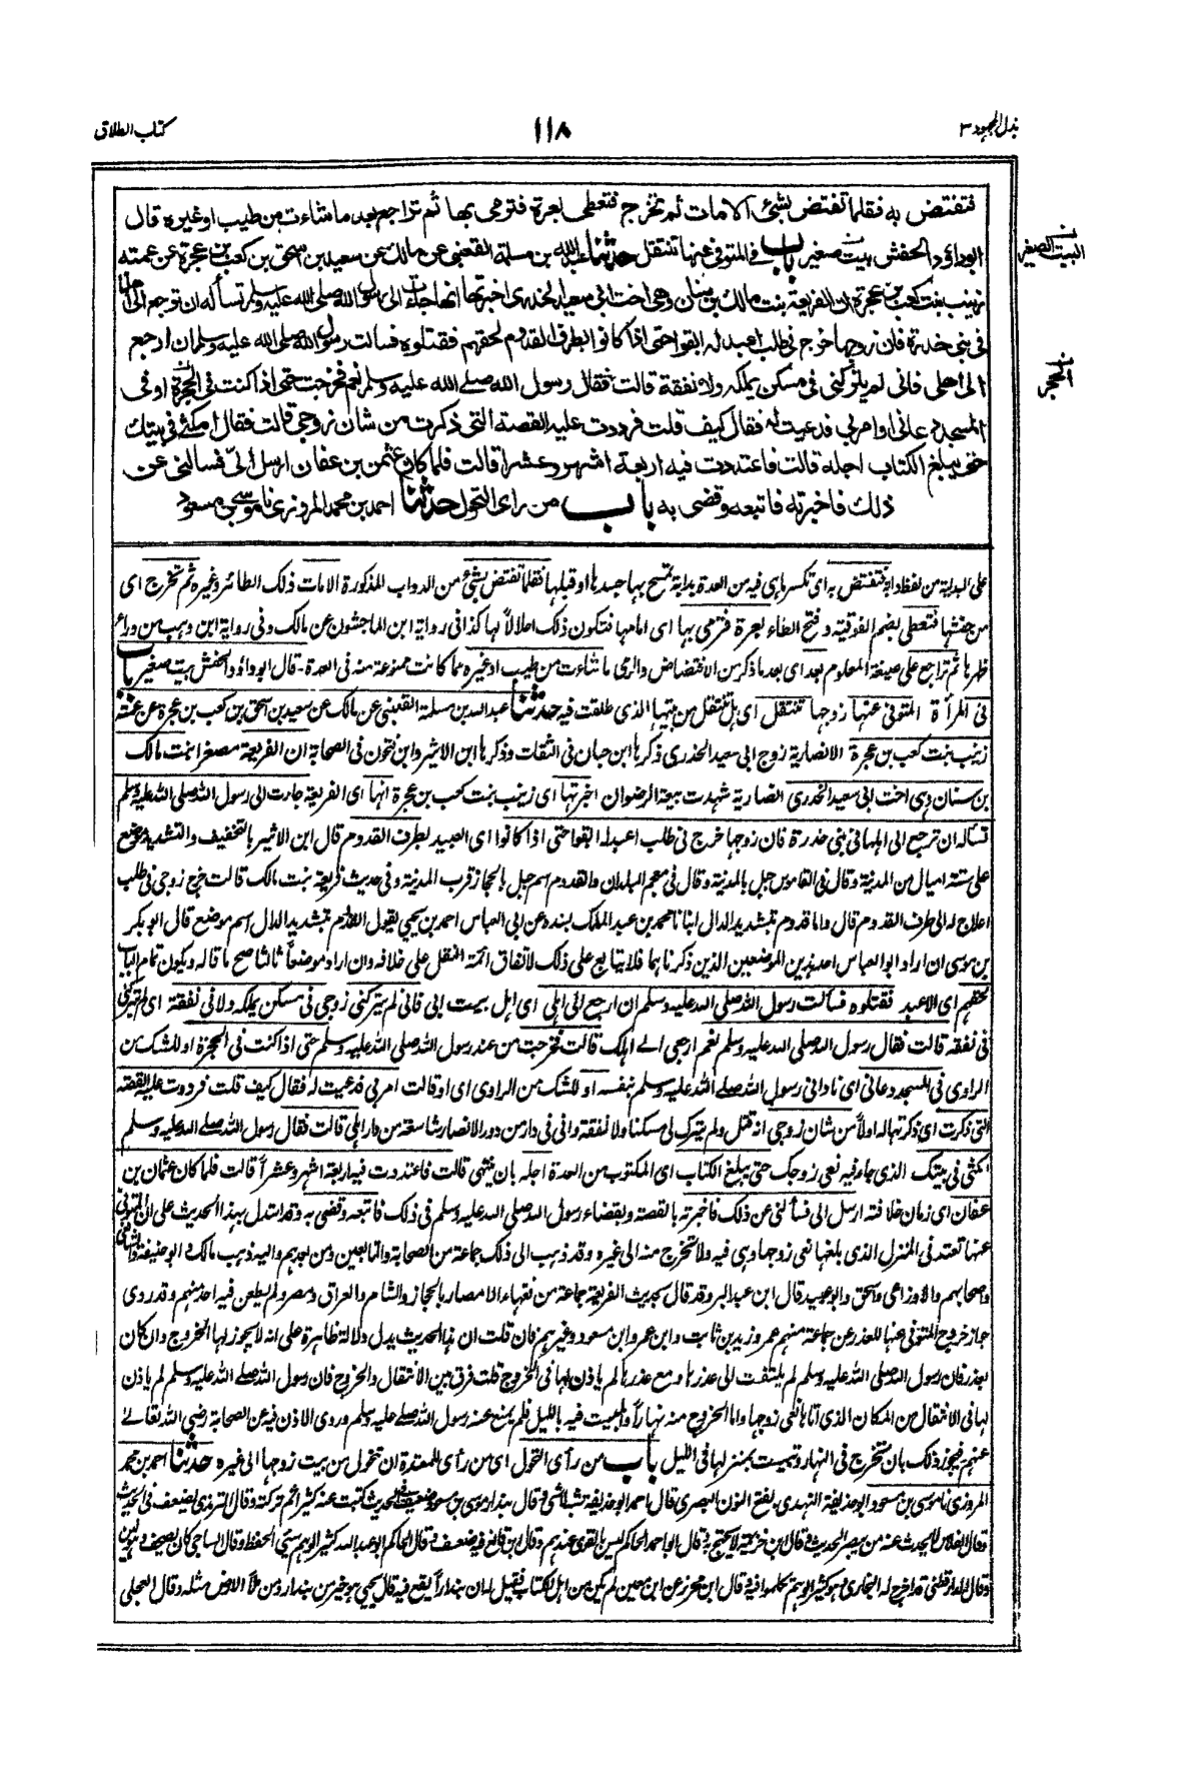 بذل المجهود ٣
١١٨
كتاب الطلاق
فتفتض به فقلما تفتض بشئ الا مات ثم تخرج فتعطى بعرة فترمى بها ثم تراجع بعد ما شاءت من طيب او غيره قال
ابو داؤد الحفش بيت صغير باب فى المتوفى عنها تنتقل حدثنا عبد الله بن مسلمة القعنبى عن مالك عن سعيد بن اسحق بن كعب بن عجرة عن عمته
زينب بنت كعب بن عجرة ان الفريعة بنت مالك بن سنان وهى اخت ابى سعيد الخدرى اخبرتها انها جاءت الى رسول الله صلى الله عليه وسلم تسأله ان ترجع الى اهلها
فى بنى خدرة فان زوجها خرج فى طلب اعبد له ابقوا حتى اذا كانوا بطرف القدوم لحقهم فقتلوه فسالت رسول الله صلى الله عليه وسلم ان ارجع
الى اهلى فانى لم يتركنى فى مسكن يملكه ولا نفقة قالت فقال رسول الله صلے الله عليه وسلم نعم فخرجت حتى اذا كنت فى الحجرة او فى
المسجد دعانى او امر بى فدعيت له فقال كيف قلت فرددت عليه القصة التى ذكرت من شان زوجى قالت فقال امكثى فى بيتك
حتى يبلغ الكتاب اجله قالت فاعتددت فيه اربعة اشهر وعشرا قالت فلما كان عثمن بن عفان ارسل الىّ فسالنى عن
ذلك فاخبرته فاتبعه وقضى به باب من راى التحول حدثنا احمد بن محمد المروزى نا موسى بن مسعود
البيت الصغير
الحجر
على البداية من لفظ دابة فتفتض به اى تكسر ما هى فيه من العدة بدابة تمسح بها جسدها او قبلها فقلما تفتض بشئ من الدواب المذكورة الا مات ذلك الطائر وغيره ثم تخرج اى
من حفشها فتعطى بضم الفوقية وفتح الطاء بعرة فترمى بها اى امامها فتكون ذلك احلالاً لها كذا فى رواية ابن الماجشون عن مالك وفى رواية ابن وهب من وراء
ظهرها ثم تراجع على صيغة المعلوم بعد اى بعد ما ذكر من الافتضاض والرمى ما شاءت من طيب او غيره مما كانت ممنوعة منه فى العدة - قال ابو داؤد والحفش بيت صغير باب
فى المرأة المتوفى عنها زوجها تنتقل اى هل تنتقل من بيتها الذى طلقت فيه حدثنا عبد الله بن مسلمة القعنبى عن مالك عن سعيد بن اسحق بن كعب بن عجرة عن عمته
زينب بنت كعب بن عجرة الانصارية زوج ابى سعيد الخدرى ذكرها ابن حبان فى الثقات وذكرها ابن الاثير وابن فتحون فى الصحابة ان الفريعة مصغرا بنت مالك
بن سنان وهى اخت ابى سعيد الخدرى انصارية شهدت بيعة الرضوان اخبرتها اى زينب بنت كعب بن عجرة انها اى الفريعة جاءت الى رسول الله صلى الله عليه وسلم
تسأله ان ترجع الى اهلها فى بنى خدرة فان زوجها خرج فى طلب اعبد له ابقوا حتى اذا كانوا اى العبيد بطرف القدوم قال ابن الاثير بالتخفيف والتشديد موضع
على ستة اميال من المدينة وقال فى القاموس جبل بالمدينة وقال فى معجم البلدان والقدوم اسم جبل بالحجاز قرب المدينة وفى حديث فريعة بنت مالك قالت خرج زوجى فى طلب
اعلاج له الى طرف القدوم قال واما قدوم بتشديد الدال انبانا محمد بن عبد الملك بنده عن ابى العباس احمد بن يحيى يقول القدوم بتشديد الدال اسم موضع قال ابو بكر
بن موسى ان اراد ابو العباس احد هذين الموضعين الذين ذكرناهما فلا يتابع على ذلك لاتفاق ائمة النقل على خلافه وان اراد موضعاً ثالثا صح ما قاله ويكون تمام الباب
لحقهم اى الاعبد فقتلوه فسالت رسول الله صلى الله عليه وسلم ان ارجع الى اهلى اى اهل بيت ابى فانى لم يتركنى زوجى فى مسكن يملكه ولا فى نفقة اى لم يتركنى
فى نفقة قالت فقال رسول الله صلى الله عليه وسلم نعم ارجعى الے اهلك قالت فخرجت من عند رسول الله صلى الله عليه وسلم حتى اذا كنت فى الحجرة او للشك من
الراوى فى المسجد دعانى اى نادانى رسول الله صلے الله عليه وسلم بنفسه او للشك من الراوى اى او قالت امر بى فدعيت له فقال كيف قلت فرددت عليه القصة
التى ذكرت اى ذكرتها له اولاً من شان زوجى انه قتل ولم يترك لى مسكنا ولا نفقة وانى فى دار من دور الانصار شاسعة من دار اهلى قالت فقال رسول الله صلے الله عليه وسلم
امكثى فى بيتك الذى جاء فيه نعى زوجك حتى يبلغ الكتاب اى المكتوب من العدة اجله بان ينتهى قالت فاعتددت فيه اربعة اشهر وعشراً قالت فلما كان عثمان بن
عفان اى زمان خلافته ارسل الى فسألنى عن ذلك فاخبرته بالقصة وبقضاء رسول الله صلى الله عليه وسلم فى ذلك فاتبعه وقضى به وقد استدل بهذا الحديث على ان المتوفى
عنها تعتد فى المنزل الذى بلغها نعى زوجها وهى فيه ولا تخرج منه الى غيره وقد ذهب الى ذلك جماعة من الصحابة والتابعين ومن بعدهم واليه ذهب مالك وابو حنيفة والشافعى
واصحابهم والاوزاعى واسحق وابو عبيد قال ابن عبد البر وقد قال بحديث الفريعة جماعة من فقهاء الامصار بالحجاز والشام والعراق ومصر ولم يطعن فيه احد منهم وقد روى
جواز خروج المتوفى عنها للعذر عن جماعة منهم عمر وزيد بن ثابت وابن عمر وابن مسعود وغيرهم فان قلت ان هذا الحديث يدل دلالة ظاهرة على انه لا يجوز لها الخروج وان كان
بعذر فان رسول الله صلى الله عليه وسلم لم يلتفت الى عذرها ومع عذرها لم ياذن لها فى الخروج قلت فرق بين الانتقال والخروج فان رسول الله صلے الله عليه وسلم لم ياذن
لها فى الانتقال من المكان الذى اتاها نعى زوجها واما الخروج منه نهاراً والمبيت فيه بالليل فلم يمنع عنه رسول الله صلے عليه وسلم وروى الاذن فيه عن الصحابة رضى الله تعالےٰ
عنهم فيجوز ذلك بان تخرج فى النهار وتبيت بمنزلها فى الليل باب من رأى التحول اى من رأى للمعتدة ان تتحول من بيت زوجها الى غيره حدثنا احمد بن محمد
المروزى نا موسى بن مسعود ابو حذيفة النهدى بفتح النون البصرى قال احمد ابو حذيفة شبه لا شئ وقال بندار موسى بن مسعود ضعيف فى الحديث كتبت عنه كثيرا ثم تركته وقال الترمذى يضعف فى الحديث
وقال الفلاس لا يحدث عنه من يبصر الحديث وقال ابن خزيمة لا يحتج به وقال ابو احمد الحاكم ليس بالقوى عندهم وقال ابن قانع فيه ضعف وقال الحاكم ابو عبد الله كثير الوهم سيئ الحفظ وقال الساجى كان يصحف وهو لين
وقال الدارقطنى قد اخرج له البخارى وهو كثير الوهم تكلموا فيه وقال ابن محرز عن ابن معين لم يكن من اهل الكتاب فقيل له ان بنداراً يقع فيه قال يحيى هو خير من بندار ومن ملأ الارض مثله وقال العجلى